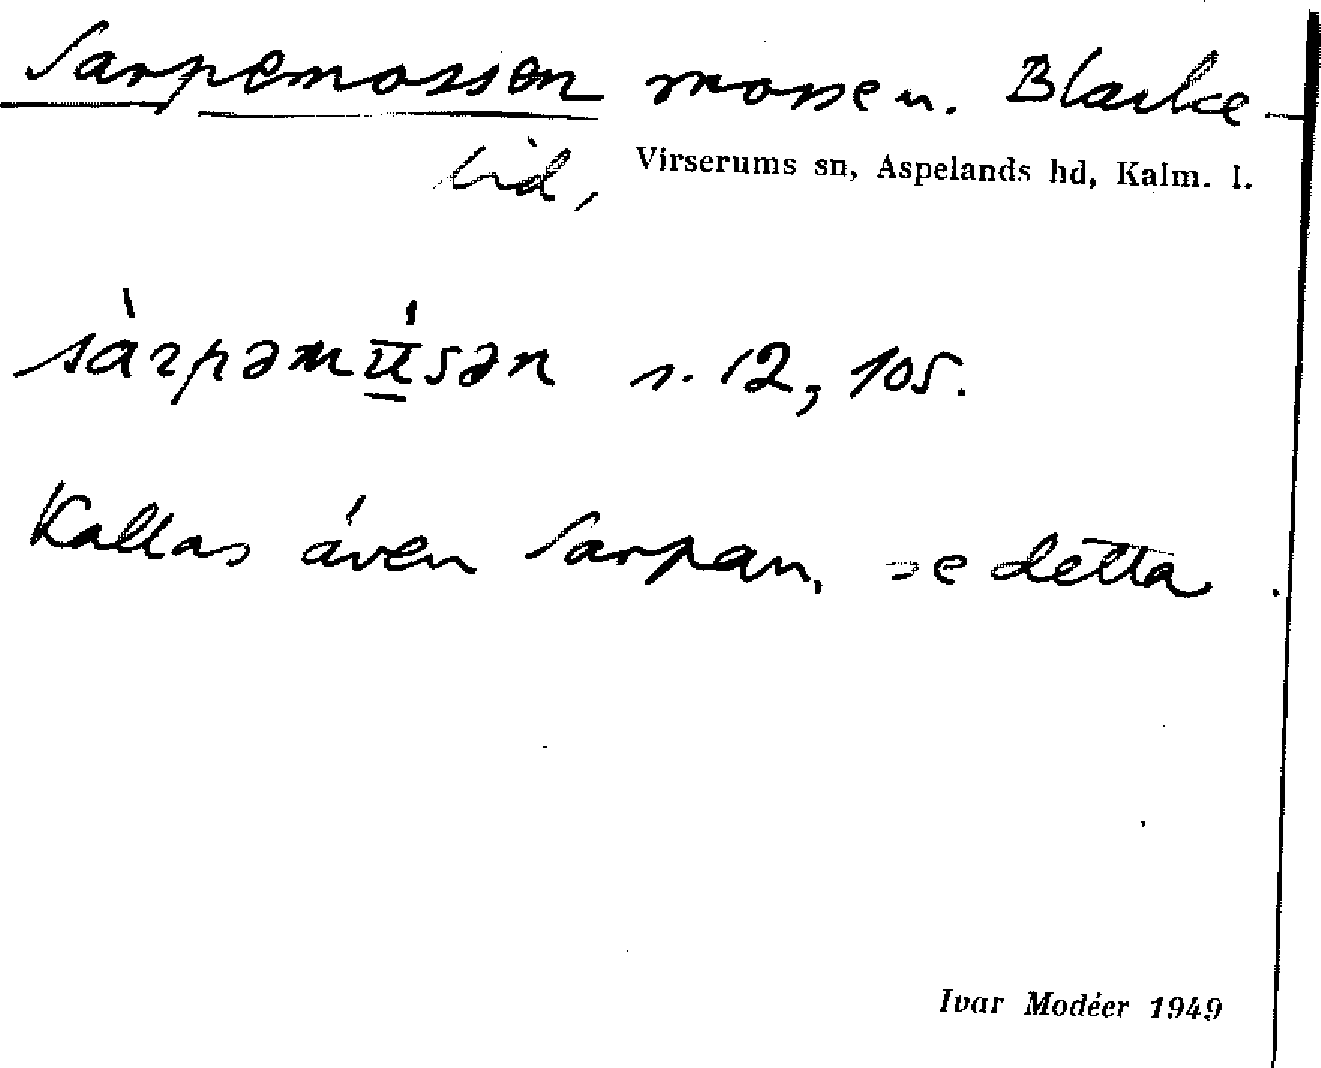 Sarpemossen mosse n. Blacke-
lid, Virserums sn, Aspelands hd, Kalm. l.
sàrpəmúsən s. 12, 105.
Kallas även Sarpan, se detta.
Ivar Modéer 1949